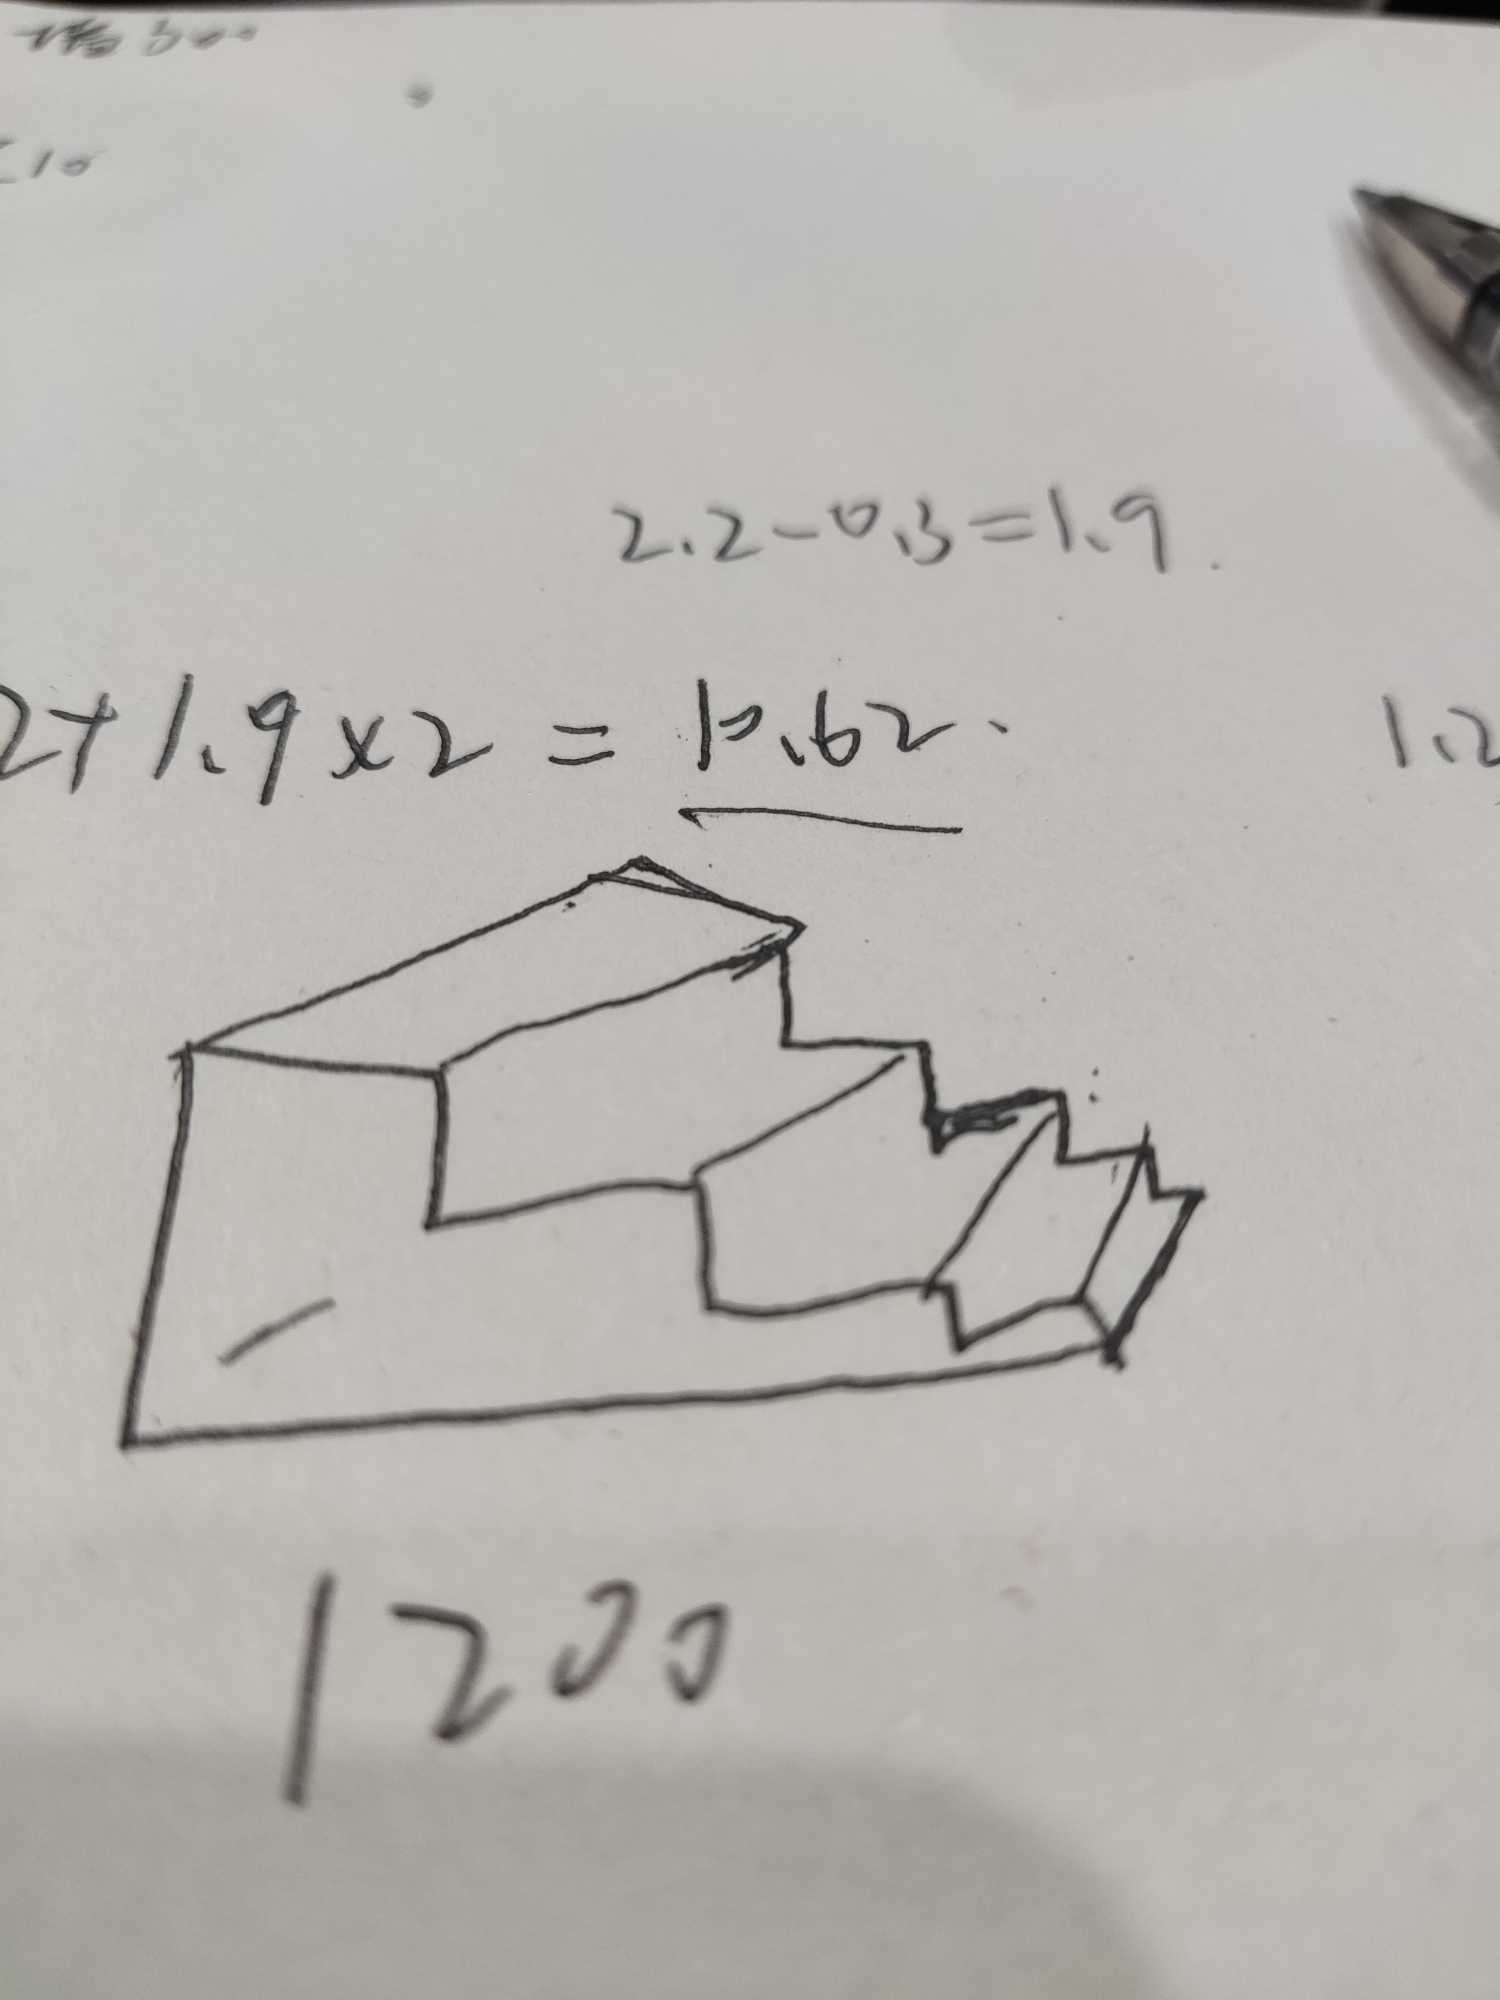 墙300
10
2.2-0.3=1.9
2+1.9×2=10.62
1.2
1200